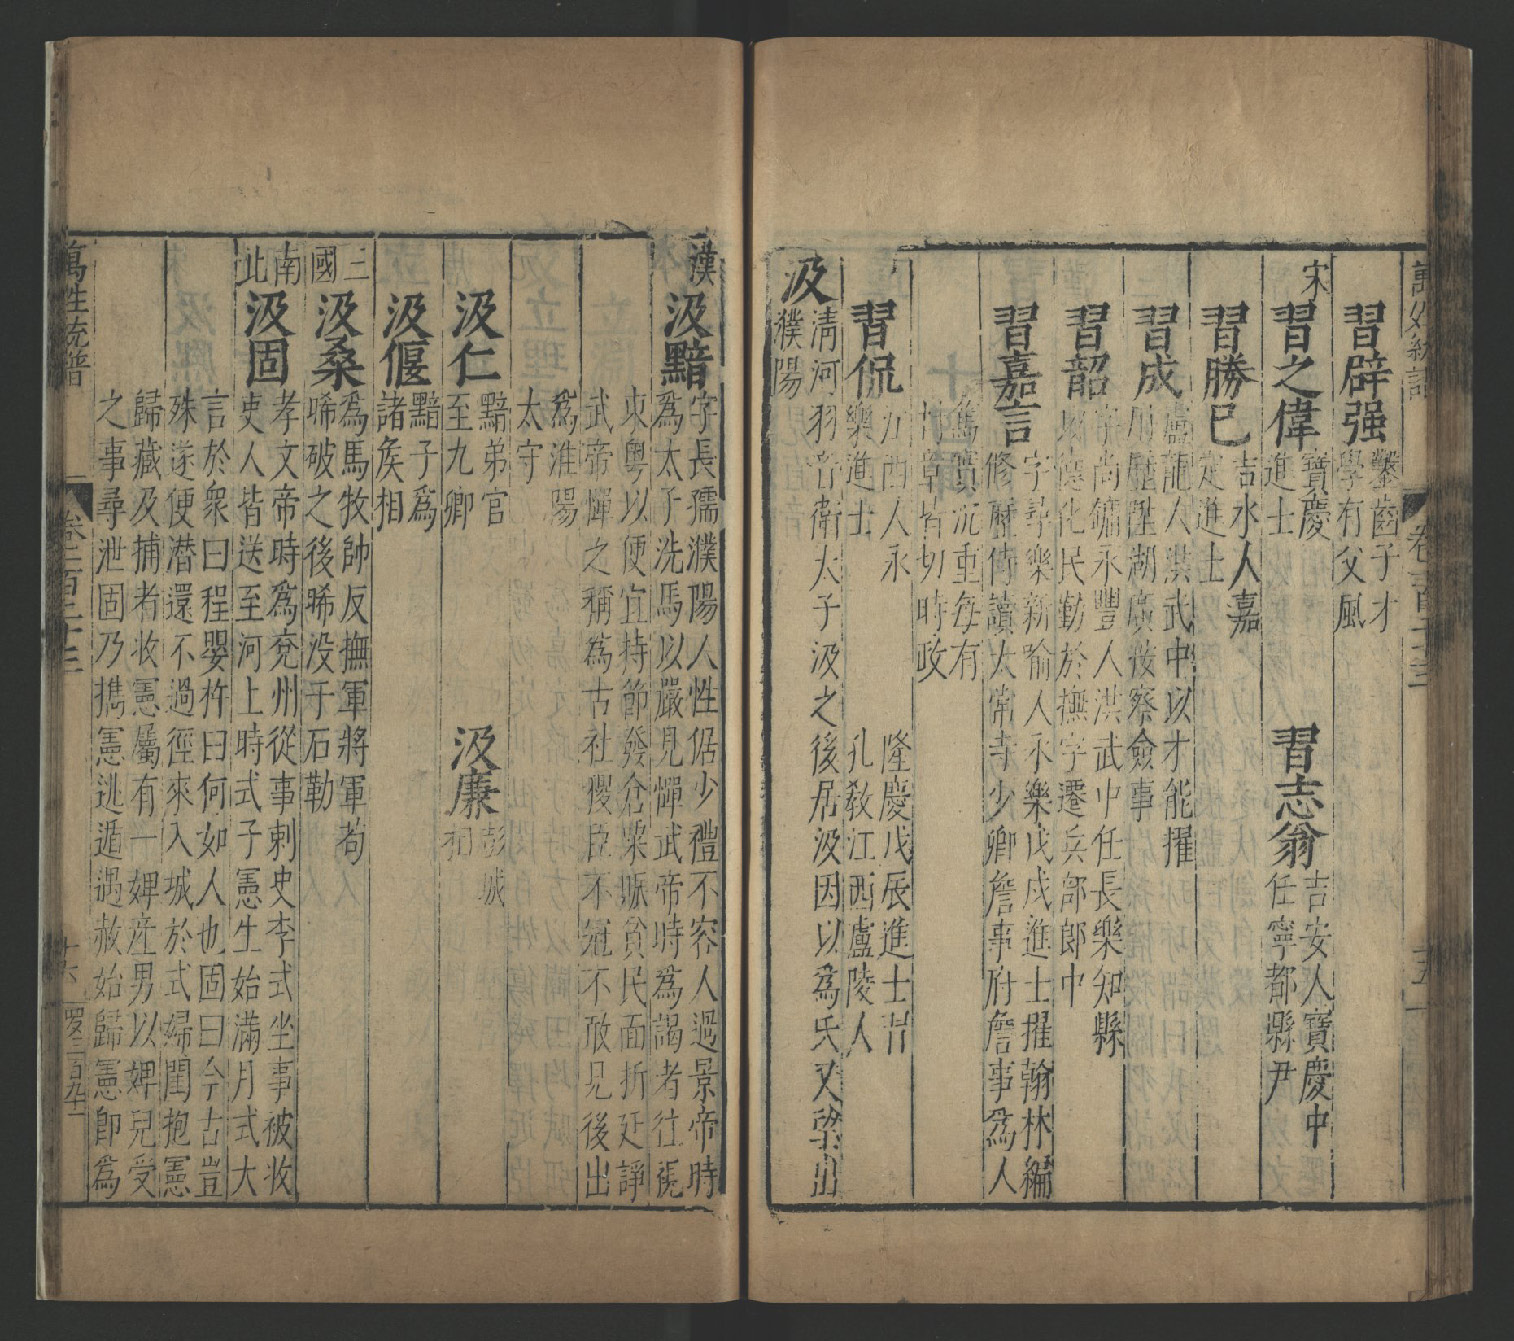 習辟强
鑿齒子才
學有父風
宋
習之偉
寶慶
進士
習志翁
吉安人寶慶中
任寧都縣尹
習勝巳
吉水人嘉
定進士
習成
盧龍人洪武中以才能擢
陞湖廣按察僉事
習韶
尚鏞永豐人洪武中任長樂知縣
德化民勤於撫字遷兵部郎中
習嘉言
字尋樂新喻人永樂戊戌進士擢翰林編
修歷侍讀太常寺少卿詹事府詹事爲人
篤實沉重每有
封章皆切時政
習侃
江西人永
樂進士
隆慶戊辰進士習
孔教江西盧陵人
汲
清河羽音衛太子汲之後居汲因以爲氏又望出
濮陽
漢
汲黯
字長孺濮陽人性倨少禮不容人過景帝時
爲太子洗馬以嚴見憚武帝時爲謁者往視
東粵以便宜持節發倉粟賑貧民面折廷諍
武帝憚之稱爲古社稷臣不冠不敢見後出
爲淮陽
太守
汲仁
黯弟官
至九卿
汲廉
彭城
相
汲偃
黯子爲
諸矦相
三國
汲桑
爲馬牧帥反撫軍將軍苟
晞破之後晞没于石勒
南北
汲固
孝文帝時爲兗州從事刺史李式坐事被收
吏人皆送至河上時式子憲生始滿月式大
言於衆曰程嬰杵臼何如人也固曰今古豈
殊遂便潛還不過徑來入城於式婦閨抱憲
歸藏及捕者收憲屬有一婢產男以婢兒受
之事尋泄固乃携憲逃遁遇赦始歸憲卽爲
萬姓統譜
卷一百二十三
十六